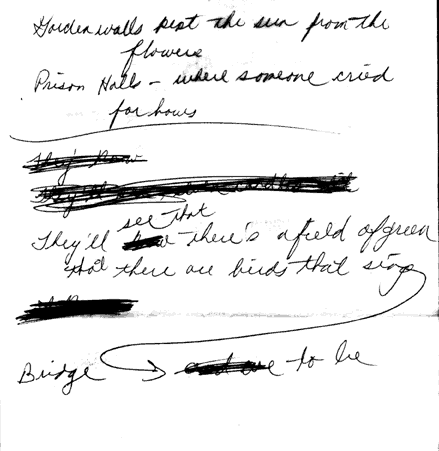 Garden walls kept the sun from the
flowers
Prison Halls - where someone cried
for hours
They
see that
They'll there's a field of green
that there are birds that sing
Bridge → to be